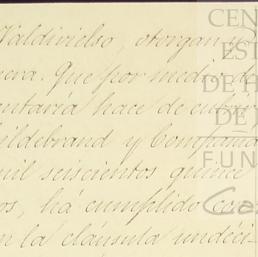 Valdivielso, otorgan y
nera. Que por medio de
entaria hace de
ildebrand y Compañia
mil seiscientos quince
os, há cumplido con
n la cláusula undéci
CEN
EST
DE H
DE
FUN